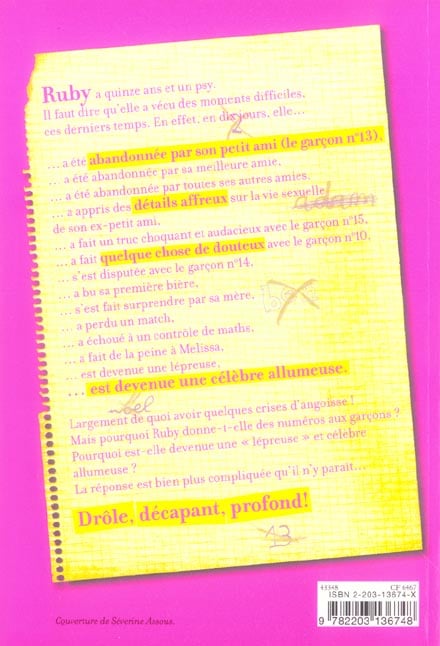 Ruby a quinze ans et un psy.
Il faut dire qu'elle a vécu des moments difficiles,
ces derniers temps. En effet, en dix jours, elle...
2
... a été abandonnée par son petit ami (le garçon n°13),
... a été abandonnée par sa meilleure amie,
... a été abandonnée par toutes ses autres amies,
... a appris des détails affreux sur la vie sexuelle
adam
de son ex-petit ami,
... a fait un truc choquant et audacieux avec le garçon n°15,
... a fait quelque chose de douteux avec le garçon n°10,
... s'est disputée avec le garçon n°14,
... a bu sa première bière,
... s'est fait surprendre par sa mère,
... a perdu un match,
... a échoué à un contrôle de maths,
... a fait de la peine à Melissa,
... est devenue une lépreuse,
... est devenue une célèbre allumeuse.
Largement de quoi avoir quelques crises d'angoisse !
Mais pourquoi Ruby donne-t-elle des numéros aux garçons ?
Pourquoi est-elle devenue une « lépreuse » et célèbre
allumeuse ?
La réponse est bien plus compliquée qu'il n'y paraît...
Drôle, décapant, profond!
13
43348 CF 6467
ISBN 2-203-13674-X
9 782203 136748
Couverture de Séverine Assous.